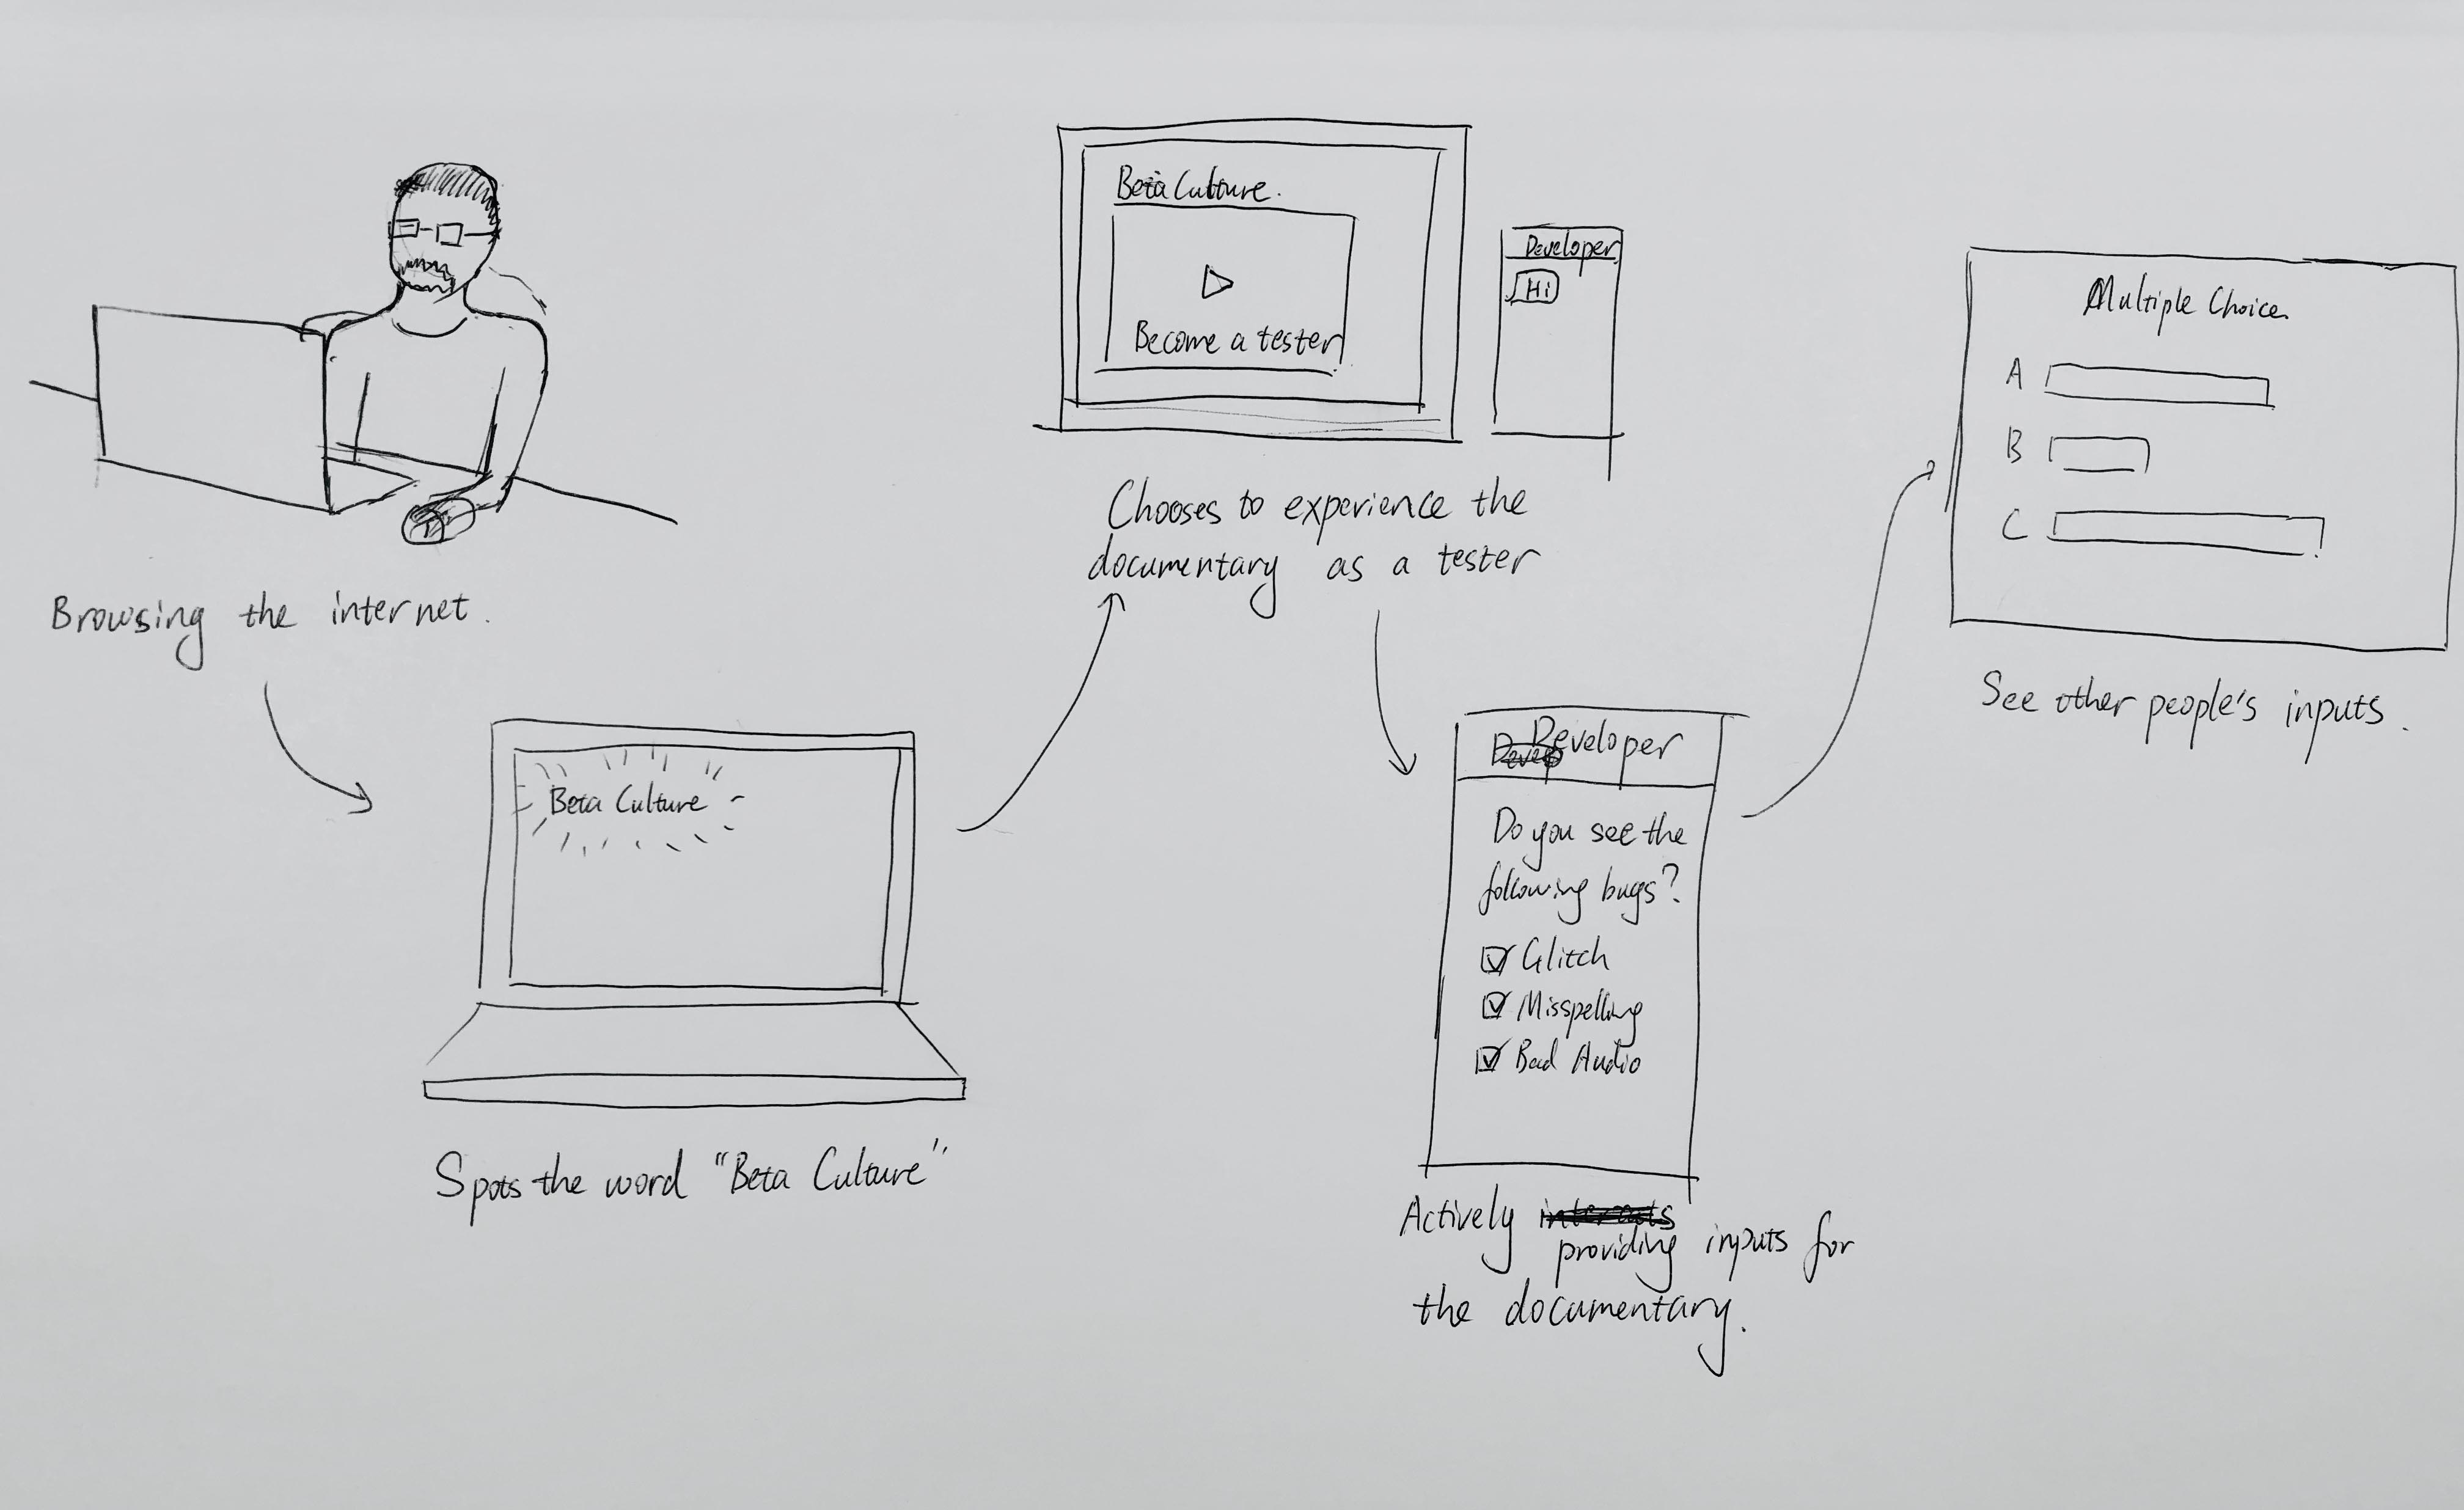 Browsing the internet.
Beta Culture
Spots the word "Beta Culture"
Beta Culture.
Become a tester
Developer
Hi
Chooses to experience the
documentary as a tester
Developer
Do you see the
following bugs?
Glitch
Misspelling
Bad Audio
Actively providing inputs for
the documentary.
Multiple Choice
A
B
C
See other people's inputs.